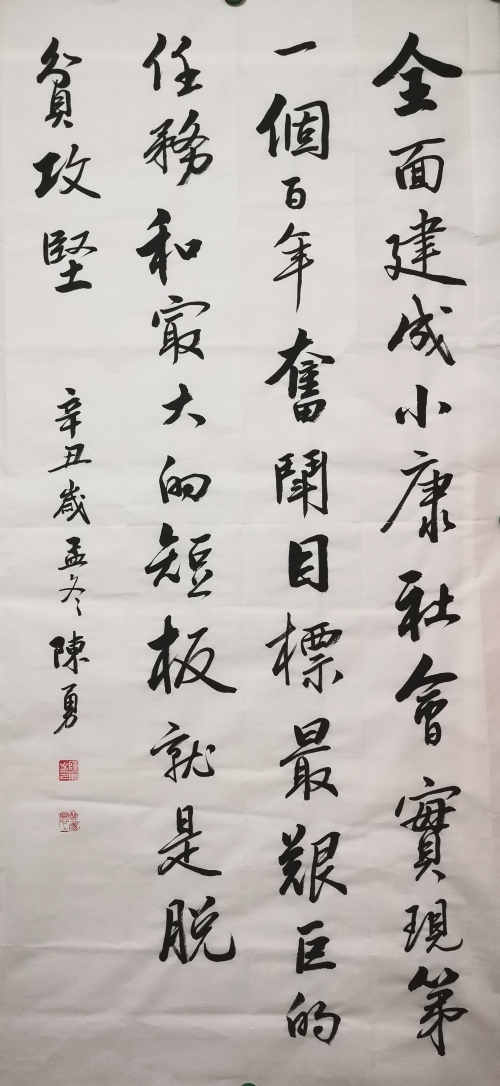 全面建成小康社會實現第
一個百年奮鬪目標最艱巨的
任務和最大的短板就是脱
貧攻堅
辛丑嵗孟冬陳勇